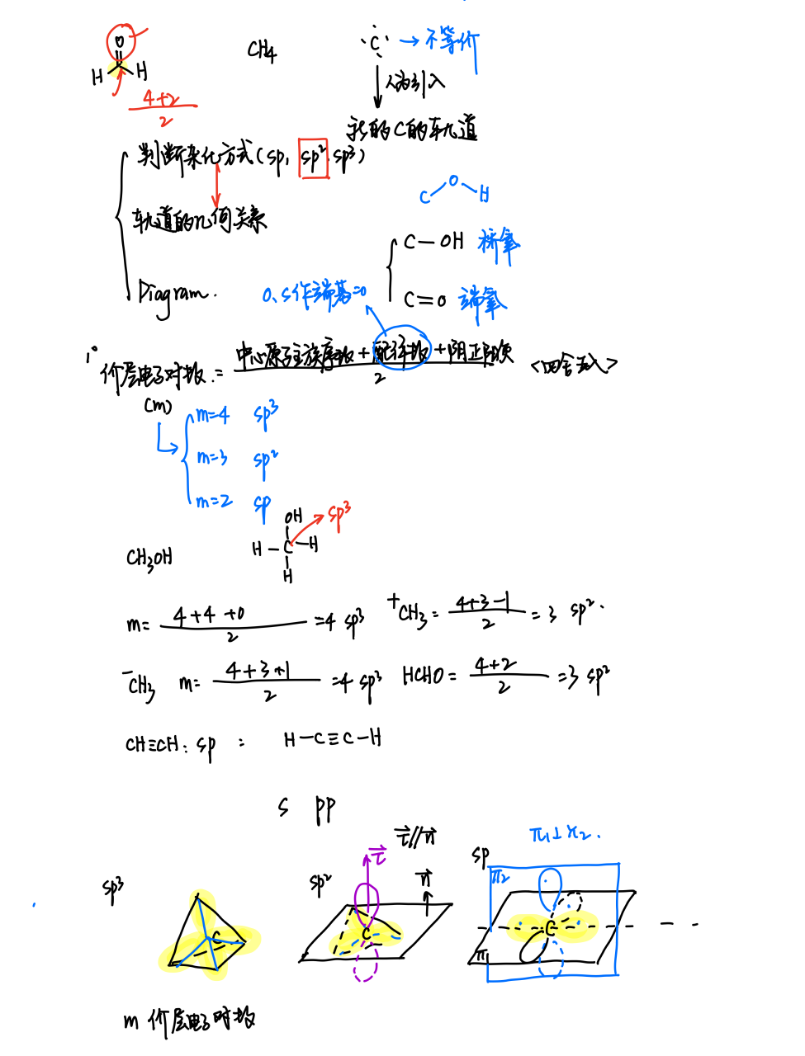 O
H H
4+2
2
CH4
C → 不等价
人为引入
新的C的轨道
判断杂化方式(sp, sp² sp³)
轨道的几何关系
Diagram.
C O H
C — OH 桥氧
C = O 端氧
O, S作端基=0
1° 价层电子对数 = 中心原子主族序数 + 配体数 + 阴正阳负 <四舍五入>
2
(m)
m=4 sp³
m=3 sp²
m=2 sp
CH₃OH
OH
H - C - H
H
sp³
m= 4+4+0 / 2 =4 sp³
⁺CH₃= 4+3-1 / 2 =3 sp².
⁻CH₃ m= 4+3+1 / 2 =4 sp³
HCHO = 4+2 / 2 =3 sp²
CH≡CH: sp : H-C≡C-H
s pp
sp³
C
sp²
τ
τ // n
n
C
sp
π₁⊥π₂.
π₂
C
π₁
m 价层电子对数